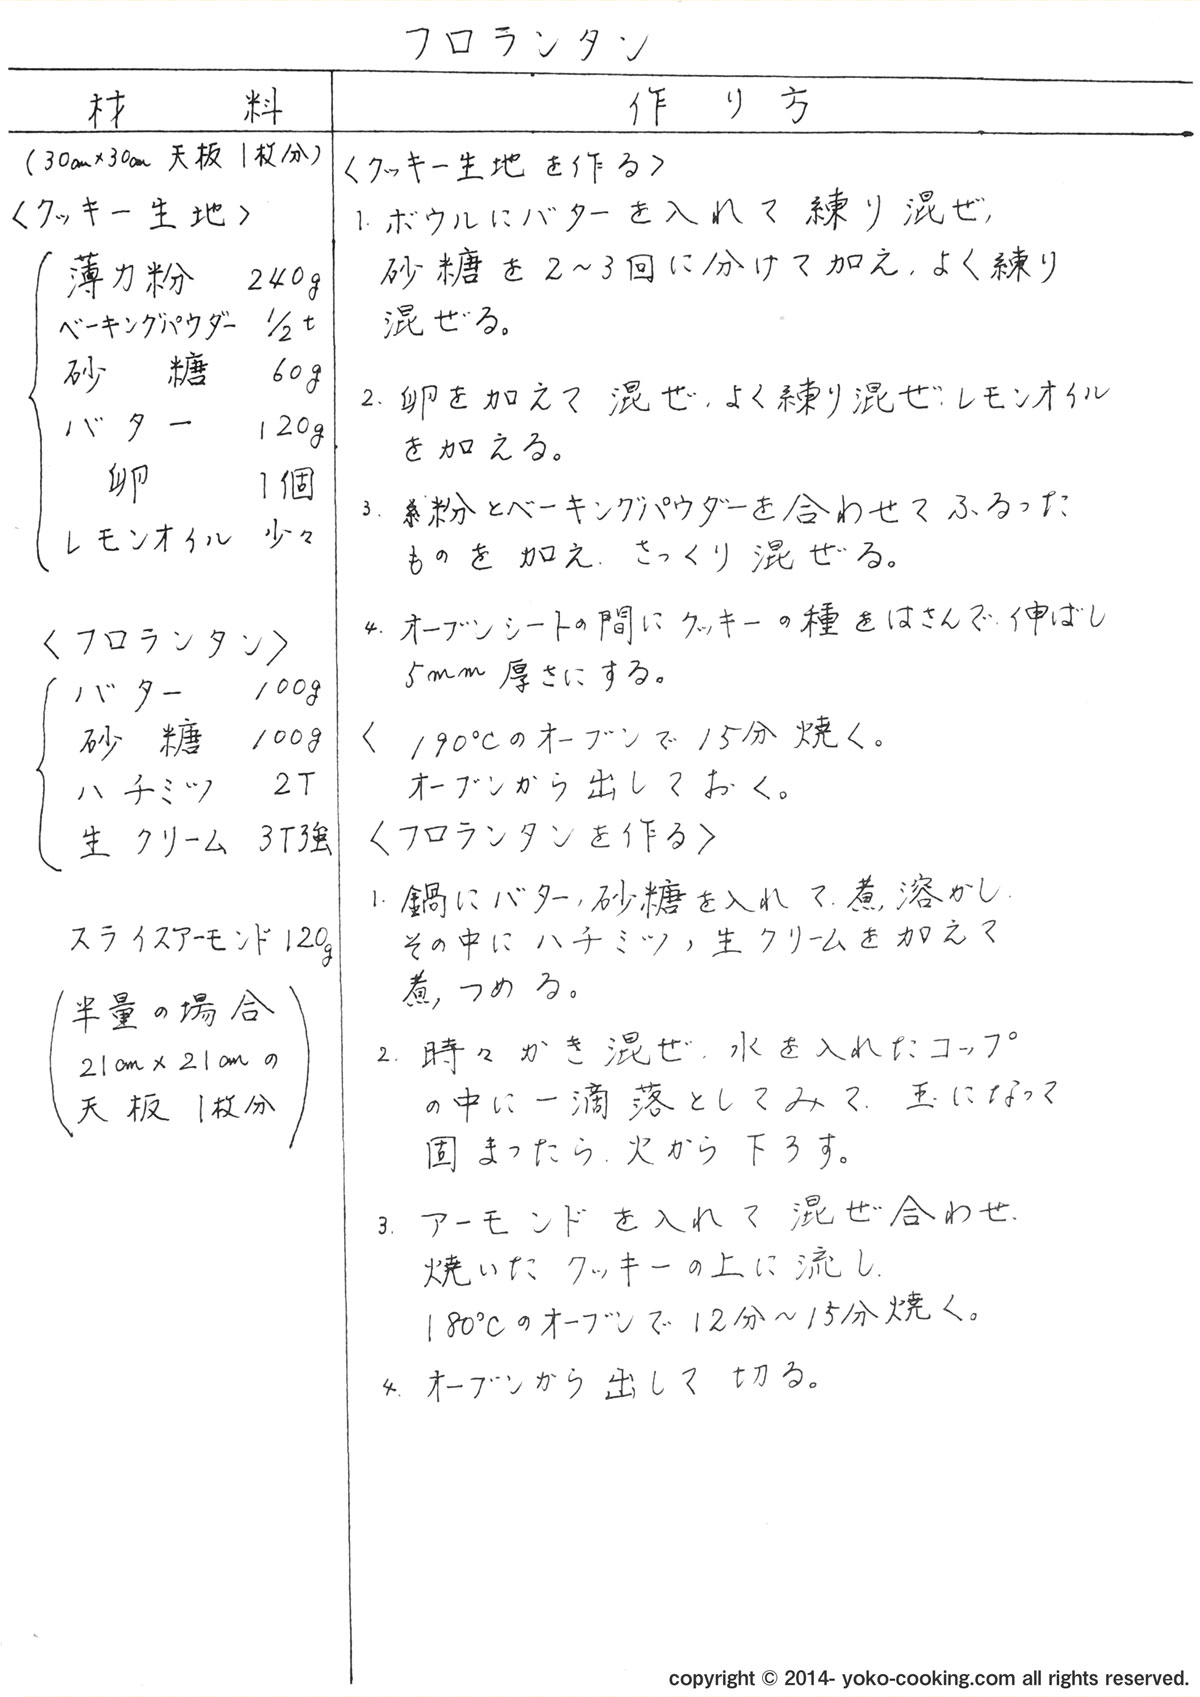 フロランタン
材料
(30cm×30cm 天板 1枚分)
〈クッキー生地〉
薄力粉 240g
ベーキングパウダー 1/2t
砂糖 60g
バター 120g
卵 1個
レモンオイル 少々
〈フロランタン〉
バター 100g
砂糖 100g
ハチミツ 2T
生クリーム 3T強
スライスアーモンド 120g
(半量の場合
21cm×21cmの
天板 1枚分)
作り方
〈クッキー生地を作る〉
1. ボウルにバターを入れて練り混ぜ、
砂糖を2〜3回に分けて加え、よく練り
混ぜる。
2. 卵を加えて混ぜ、よく練り混ぜ、レモンオイル
を加える。
3. 粉とベーキングパウダーを合わせてふるった
ものを加え、さっくり混ぜる。
4. オーブンシートの間にクッキーの種をはさんで、伸ばし
5mm厚さにする。
〈 190℃のオーブンで15分焼く。
オーブンから出しておく。
〈フロランタンを作る〉
1. 鍋にバター、砂糖を入れて、煮溶かし、
その中にハチミツ、生クリームを加えて
煮つめる。
2. 時々かき混ぜ、水を入れたコップ
の中に一滴落としてみて、玉になって
固まったら、火から下ろす。
3. アーモンドを入れて混ぜ合わせ、
焼いたクッキーの上に流し、
180℃のオーブンで12分〜15分焼く。
4. オーブンから出して切る。
copyright © 2014- yoko-cooking.com all rights reserved.